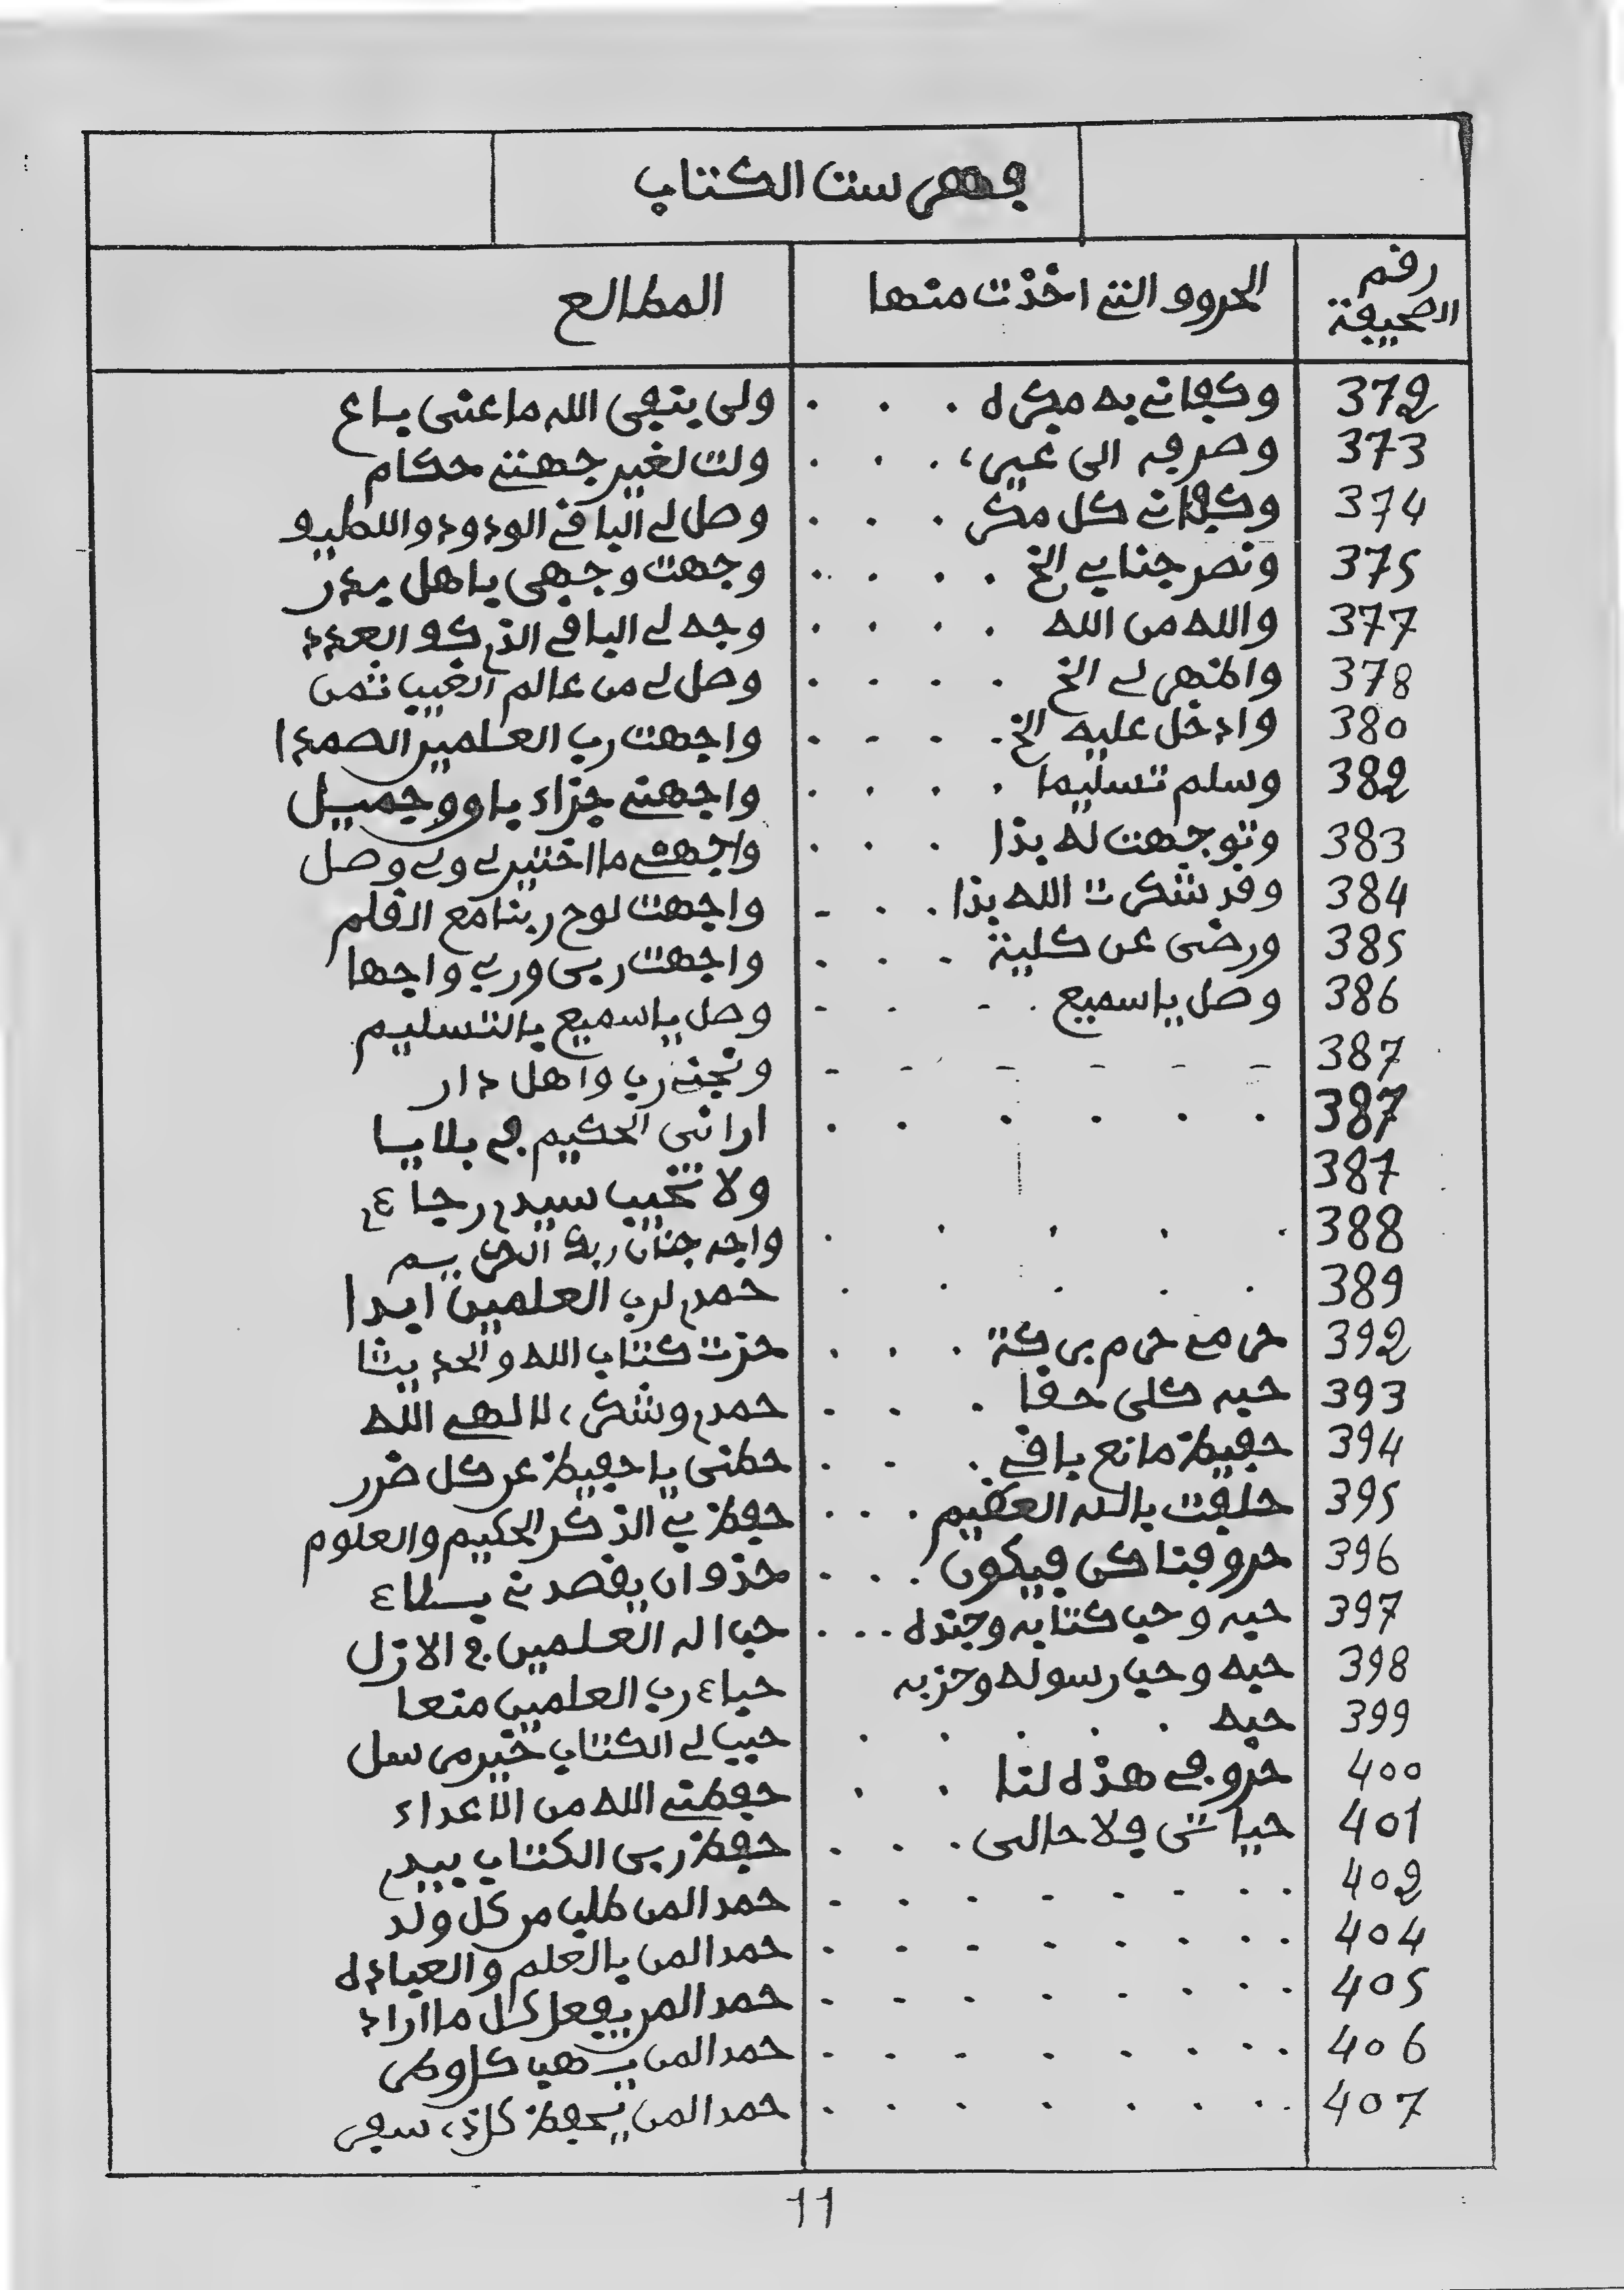 فهرست الكتاب
رقم الصحيفة | الحروف التي اخذت منها | المطالع
372 | وكفاني به مكره . . . | ولى ينفى الله ما عنى باع
373 | وصرفه الى غيرى . . . | ولت لغير جهتي حكام
374 | وكفاني كل مكر . . . | وصل لي الباقي الودود واللطيف
375 | ونصر جنابي الخ . . . . | وجهت وجهى
377 | والله من الله . . . . | وجه لي الباقي الذي كف العدد
378 | الخ . . . . | وصل لي من عالم الغيب ثمن
380 | وادخل عليه الخ . . . . | واجهت رب العلمين الصمدا
382 | وسلم تسليما . . . . | واجهني جزاء باق وجميل
383 | وتوجهت له بذا . . . | واجهني ما اختير لي ولي وصل
384 | وقد شكرت الله بذا . . . | واجهت لوح ربنا مع القلم
385 | ورضى عن كلية . . . | واجهت ربى وربي واجها
386 | وصل يا سميع . . . . | وصل يا سميع بالتسليم
387 | - - - - - - | ونجني رب واهل دار
387 | . . . . . . | ارانى الحكيم في بلايا
387 | ولا تخيب سيدي رجاءي
388 | . . . . . | واجه جنان ربك الكريم
389 | . . . . . | حمدي لرب العلمين ابدا
392 | حرمع حرم بركة . . . | حزت كتاب الله والحديثا
393 | حبه كلى حقا . . . | حمدي وشكرى لالهي الله
394 | حفيظ مانع باقي . . . | حطنى يا حفيظ عن كل ضرر
395 | حلفت بالله العظيم . . . | حفظ لي الذكر الحكيم والعلوم
396 | حروفنا كن فيكون . . . | بسطاء
397 | حبه وحب كتابه وجنده . . . | حب اله العلمين في الازل
398 | حبه وحب رسوله وحزبه | حباء رب العلمين متعا
399 | حبه . . . . . | حبب لي الكتاب خير مرسل
400 | حروفي هذه لنا . . | حفظني الله من الاعداء
401 | حياتى فلاحالى . . . | حفظ ربى الكتاب بيدي
402 | . . . . . . . . | حمدا لمن طلب من كل ولد
404 | . . . . . . . . | حمدا لمن بالعلم والعباده
405 | . . . . . . . . | حمدا لمن يفعل كل ما اراد
406 | . . . . . . . . | حمدا لمن يهب كل وطر
407 | . . . . . . . . | حمدا لمن يحفظ كل ذى سفر
11